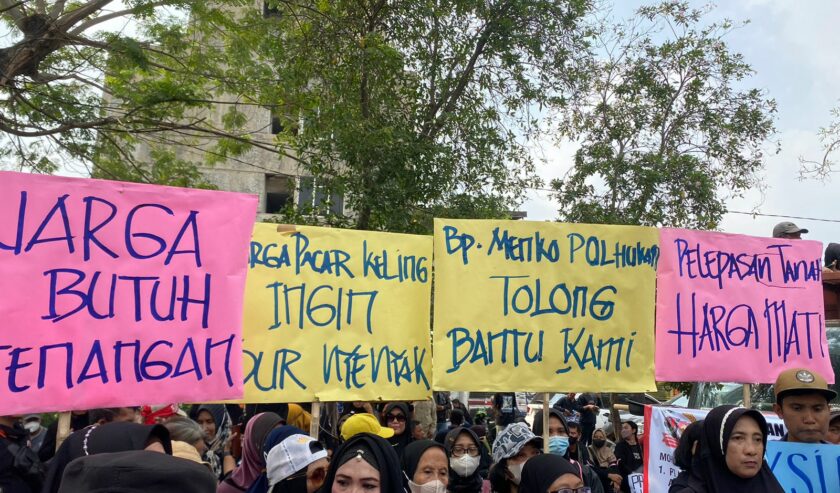 WARGA
BUTUH
TENANGAN
WARGA PACAR KELING
INGIN
TIDUR NYENYAK
Bp. MENKO POLHUKAM
TOLONG
BANTU KAMI
PELEPASAN TANAH
HARGA MATI